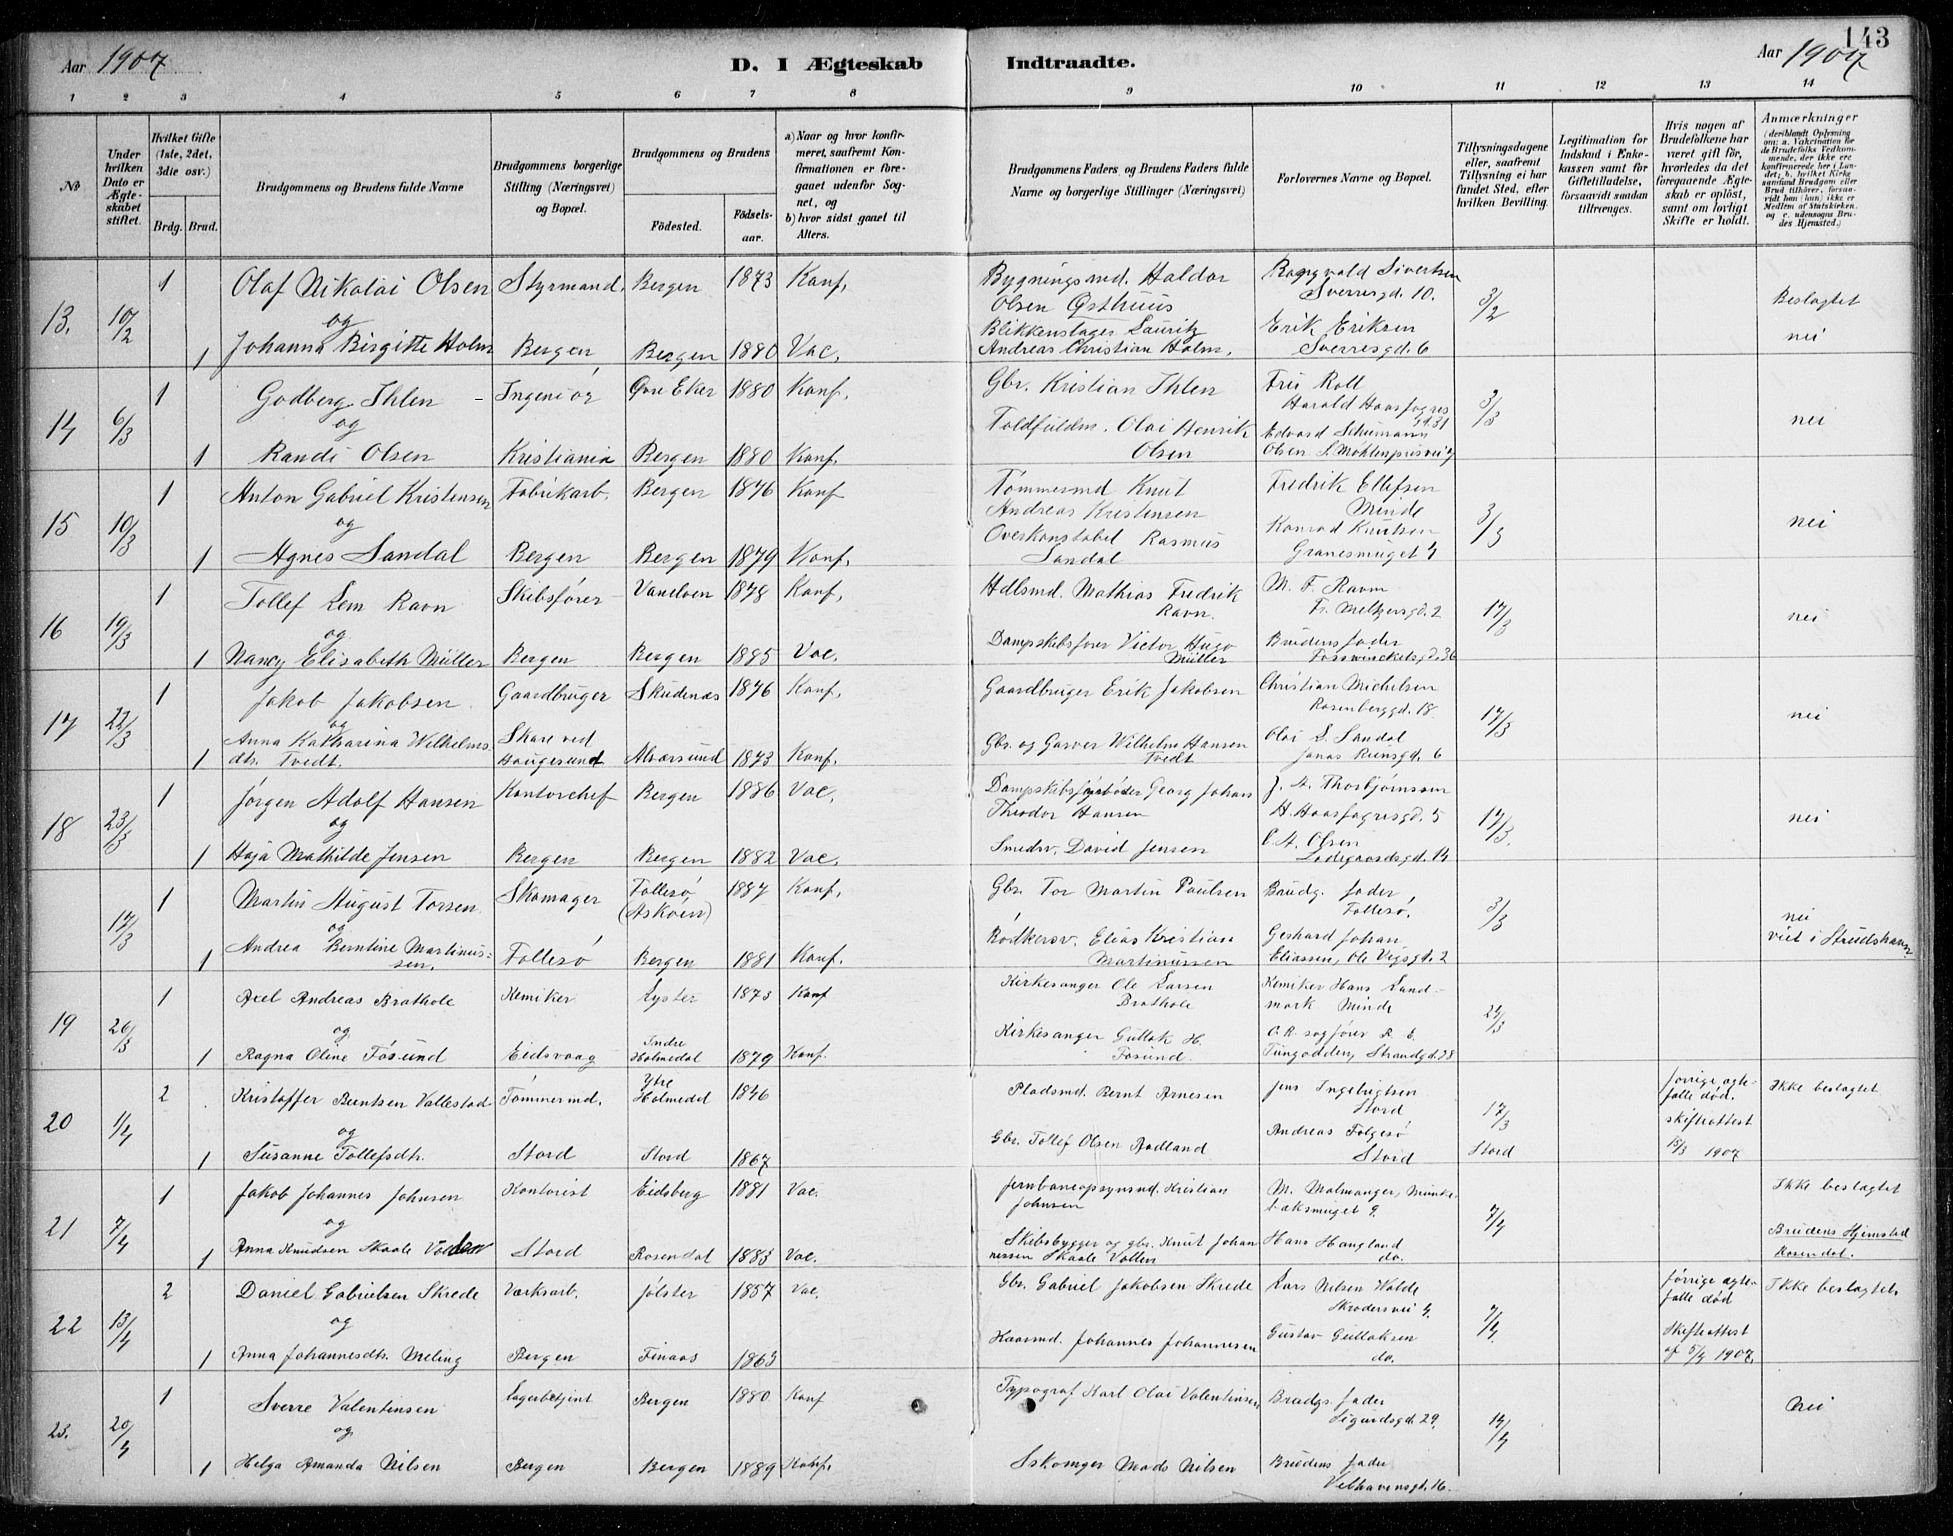 143
Aar 1907
D. I Ægteskab Indtraadte.
Aar 1907
1 2 3 4 5 6 7 8 9 10 11 12 13 14
№
Under hvilken Dato er Ægteskabet stiftet.
Hvilket Gifte (1ste, 2det, 3die osv.)
Brdg. Brud.
Brudgommens og Brudens fulde Navne
Brudgommens borgerlige Stilling (Næringsvei) og Bopæl.
Brudgommens og Brudens
Födested.
Födsels-aar.
a) Naar og hvor konfirmeret, saafremt Konfirmationen er foregaaet udenfor Sognet, og
b) hvor sidst gaaet til Alters.
Brudgommens Faders og Brudens Faders fulde Navne og borgerlige Stillinger (Næringsvei)
Forlovernes Navne og Bopæl.
Tillysningsdagene eller, saafremt Tillysning ei har fundet Sted, efter hvilken Bevilling.
Legitimation for Indskud i Enkekassen samt for Giftetilladelse, forsaavidt saadan tiltrænges.
Hvis nogen af Brudefolkene har været gift för, hvorledes da det foregaaende Ægteskab er oplöst, samt om lovligt Skifte er holdt.
Anmærkninger
13. 10/2 1 Olaf Nikolai Olsen Styrmand. Bergen 1873 Konf. Bygningsmd. Haldor Olsen Østhuus Ragnvald Sivertsen Sverresgd. 10. 3/2 Beslagtet
og
1 Johanna Birgitte Holm Bergen Bergen 1880 Vac. Blikkenslager Lauritz Andreas Christian Holm. Erik Eriksen Sverresgd. 6 nei
14 6/3 1 Godberg Ihlen Ingeniør Øvre Eker 1880 Konf. Gbr. Kristian Ihlen Roll Harald Haarfagres gd. 31 3/3 nei
og
1 Randi Olsen Kristiania Bergen 1880 Konf. Toldfuldm. Olai Henrik Olsen Edvard Schumann Olsen
15 10/3 1 Anton Gabriel Kristensen Fabrikarb. Bergen 1876 Konf Tømmermd Knut Andreas Kristensen Fredrik Ellefsen Minde 3/3 nei
og
1 Agnes Sandal Bergen Bergen 1879 Konf. Overkonstabel Rasmus Sandal Konrad Knutsen
16 19/3 1 Tollef Lem Ravn Skibsfører 1878 Konf. Hdlsmd. Mathias Fredrik Ravn. M. F. Ravn Fr. Meltzersgd. 2 17/3 nei
og
1 Nancy Elisabeth Müller Bergen Bergen 1885 Vac. Dampskibsfører Victor Hugo Müller Brudens fader Fosswinckelsgd. 36
17 22/3 1 Jakob Jakobsen Gaardbruger Skudenæs 1876 Konf. Gaardbruger Erik Jakobsen Christian Michelsen Rosenberggd. 18 17/3 nei
og
1 Anna Katharina Wilhelmsdtr. Tvedt. Skare ved Haugesund Alversund 1873 Konf. Gbr. og Garver Wilhelm Hansen Tvedt Olai S. Sandal Jonas Reinsgd. 6
18 23/3 1 Jørgen Adolf Hansen Kontorchef Bergen 1886 Vac. Georg Johan Theodor Hansen J. A. Thorbjørnssen H. Haarfagresgd. 5 17/3. nei
og
1 Haja Mathilde Jensen Bergen Bergen 1882 Vac. Smedsv. David Jensen C. A. Olsen Ladegaardsgd. 14
17/3 1 Martin August Torsen Skomager Follesø (Askøen) 1887 Konf. Gbr. Tor Martin Paulsen Brudg. fader Follesø. 3/3 nei
og
1 Andrea Berntine Martinussen. Follesø Bergen 1881 Konf. Bødkersv. Elias Kristian Martinussen Gerhard Johan Eliassen, Ole Vigsgd. 2 viet i Strudshavn
19 26/3 1 Axel Andreas Brathole Kemiker Lyster 1873 Konf Kirkesanger Ole Larsen Brathole Kemiker Hans Landmark Minde 24/3
og
1 Ragna Oline Fosund Eidsvaag Indre Holmedal 1879 Konf. Kirkesanger Gullak H. Fosund. O.R. sagfører R. E. Tungodden, Strandgd. 28
20 1/4 2 Kristoffer Berntsen Vallestad Tømmermd. Ytre Holmedal 1846 Pladsmd. Bernt Arnesen Jens Ingebrigtsen Stord 17/3 forrige ægtefælle død. Ikke beslagtet
og
1 Susanne Tollefsdtr. Stord Stord 1867 Gbr. Tollef Olsen Rodland Andreas Folgesø Stord Stord skifteattest 15/3 1907
21 7/4 1 Jakob Johannes Johnsen Kontorist Eidsberg 1881 Vac. Jernbaneopsynsmd. Kristian Johnsen M. Malmanger, Munkebæksmuget 9. 7/4 Ikke beslagtet
og
1 Anna Knudsen Skaale Vallen Stord Rosendal 1883 Vac. Skibsbygger og gbr. Knut Johannessen Skaale Vallen Hans Haugland do. Brudens Hjemsted Rosendal.
22 13/4 2 Daniel Gabrielsen Skrede Værksarb. Jølster 1857 Vac. Gbr. Gabriel Jakobsen Skrede Lars Nilsen Walde 7/4. forrige ægtefælle død Ikke beslagtet
og
1 Anna Johannesdtr. Meling Bergen Finaas 1863 Huusmd. Johannes Johannesen Gustav Gullaksen do. Skifteattest af 5/4 1907.
23. 20/4 1 Sverre Valentinsen Lagerbetjent Bergen 1880 Konf Typograf Karl Olai Valentinsen Brudgs. fader Sigurdsgd. 29. 14/4 Nei
og
1 Helga Amanda Nilsen Bergen Bergen 1889 Konf. Skomager Mads Nilsen Brudens fader Welhavensgd. 16.